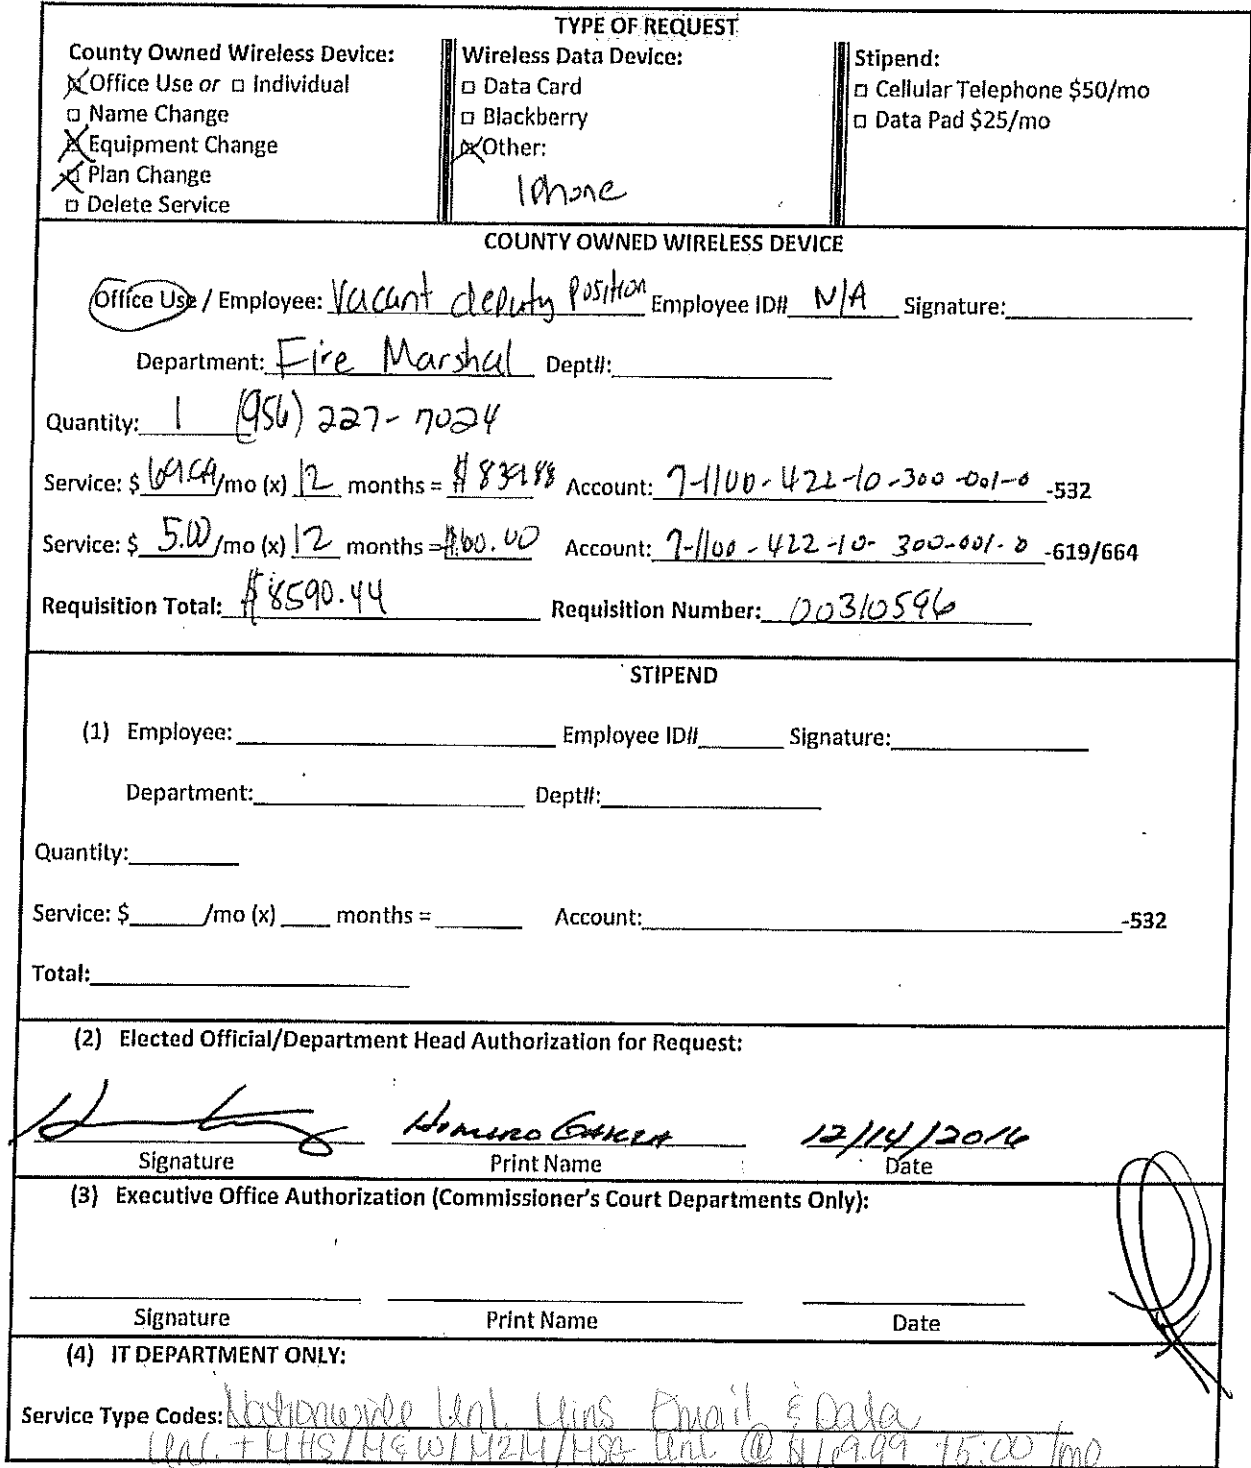 TYPE OF REQUEST
County Owned Wireless Device:
Office Use or □ Individual
□ Name Change
Equipment Change
Plan Change
□ Delete Service
Wireless Data Device:
□ Data Card
□ Blackberry
Other:
Iphone
Stipend:
□ Cellular Telephone $50/mo
□ Data Pad $25/mo
COUNTY OWNED WIRELESS DEVICE
Office Use / Employee: Vacant deputy Position Employee ID# N/A Signature:
Department: Fire Marshal Dept#:
Quantity: 1 (956) 227-7024
Service: $ 69.99/mo (x) 12 months = $839.88 Account: 7-1100-422-10-300-001-0 -532
Service: $ 5.00/mo (x) 12 months = $60.00 Account: 7-1100-422-10-300-001-0 -619/664
Requisition Total: $8590.44 Requisition Number: 00310596
STIPEND
(1) Employee: Employee ID# Signature:
Department: Dept#:
Quantity:
Service: $ /mo (x) months = Account: -532
Total:
(2) Elected Official/Department Head Authorization for Request:
Homero Garcia 12/14/2016
Signature Print Name Date
(3) Executive Office Authorization (Commissioner's Court Departments Only):
Signature Print Name Date
(4) IT DEPARTMENT ONLY:
Service Type Codes: Nationwide Unl. Mins Email & Data
Unl. + MHS/M&W/M2M/ Unl @ $69.99 + 5.00 /mo